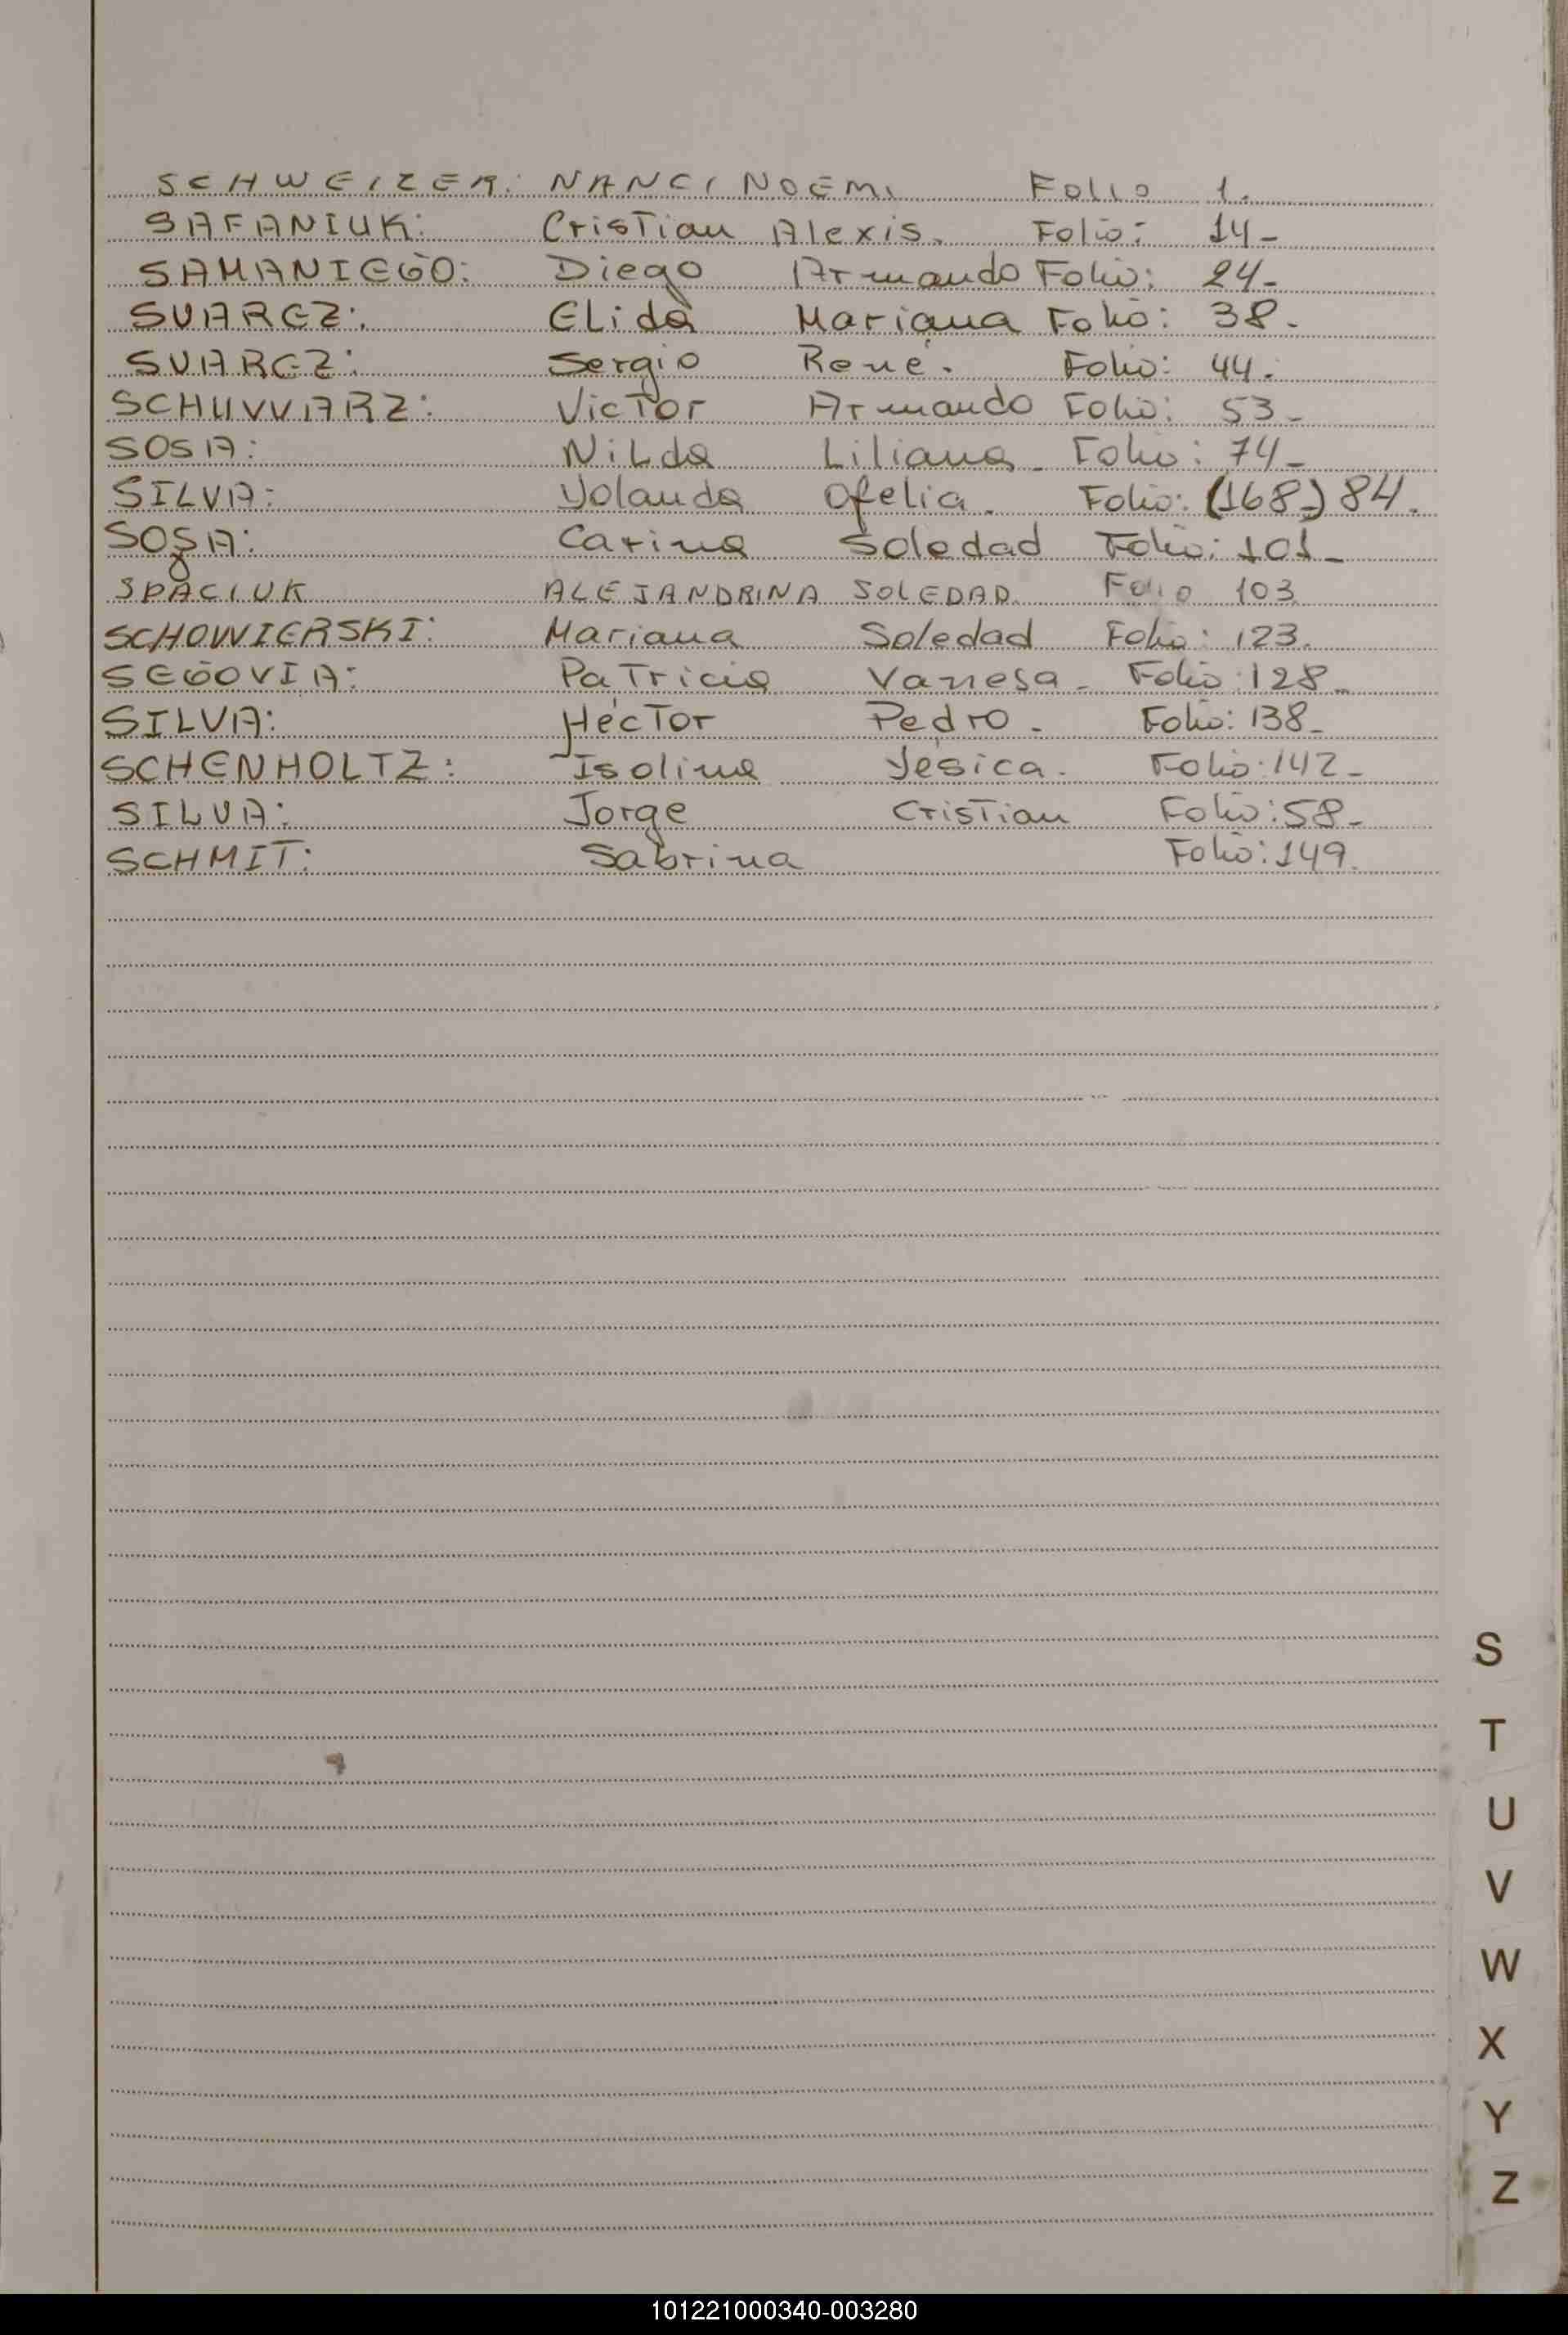 SCHWEIZER: NANCI NOEMI Folio 1.
SAFANIUK: Cristian Alexis. Folio: 14-
SAMANIEGO: Diego Armando Folio: 24-
SUAREZ: Elida Mariana Folio: 38.
SUAREZ: Sergio René. Folio: 44.
SCHUVVARZ: Victor Armando Folio: 53-
SOSA: Nilda Liliana- Folio: 74-
SILVA: Yolanda Ofelia. Folio: (168-) 84.
SOSA: Carina Soledad Folio: 101-
SPACIUK ALEJANDRINA SOLEDAD. Folio 103
SCHOWIERSKI: Mariana Soledad Folio: 123.
SEGOVIA: Patricia Vanesa- Folio: 128-
SILVA: Héctor Pedro- Folio: 138-
SCHENHOLTZ: Isolina Yésica. Folio: 142-
SILVA: Jorge Cristian Folio: 58-
SCHMIT: Sabrina Folio: 149.
S
T
U
V
W
X
Y
Z
101221000340-003280